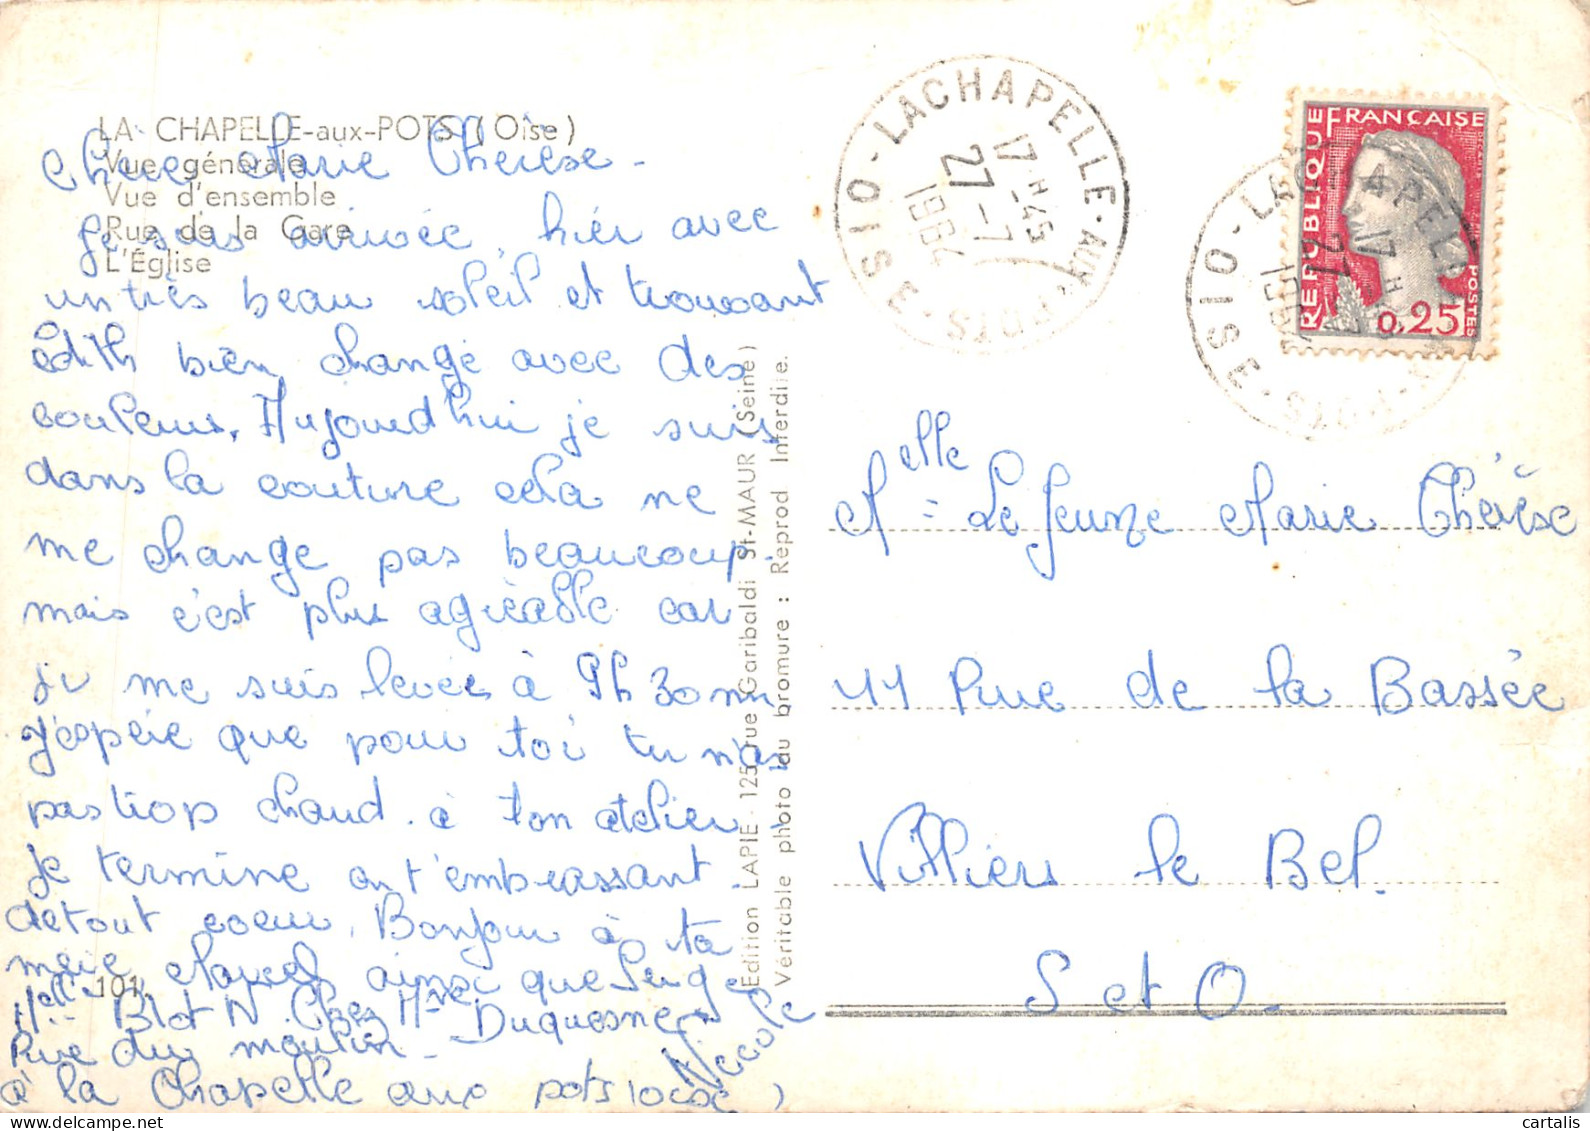 LA CHAPELLE-aux-POTS (Oise)
Vue générale
Vue d'ensemble
Rue de la Gare
L'Église
Chère Marie Thérèse.
Je suis arrivée, hier avec
un très beau soleil et trouvant
Edith bien changé avec des
couleurs. Aujourd'hui je suis
dans la couture cela ne
me change pas beaucoup
mais c'est plus agréable car
je me suis levée à 9h30mn
J'espère que pour toi tu n'as
pas trop chaud. à ton atelier.
Je termine en t'embrassant.
de tout coeur. Bonjour à ta
mère Marcel ainsi que Serge
Nicole
Melle Blot N. Chez Mme Duquesne
Rue du moulin
à la Chapelle aux pots (oise)
101.
Edition LAPIE - 125, rue Garibaldi St-MAUR (Seine)
Véritable photo au bromure : Reprod Interdite.
LACHAPELLE-AUX-POTS - OISE
17H-45
27-7
1964
LACHAPELLE-AUX-POTS - OISE
17H
27-7
1964
REPUBLIQUE FRANÇAISE
POSTES
0,25
DECARIS
Melle Le Jeune Marie Thérèse
11 Rue de la Bassée
Villiers le Bel.
S et O.
cartalis
delcampe.net